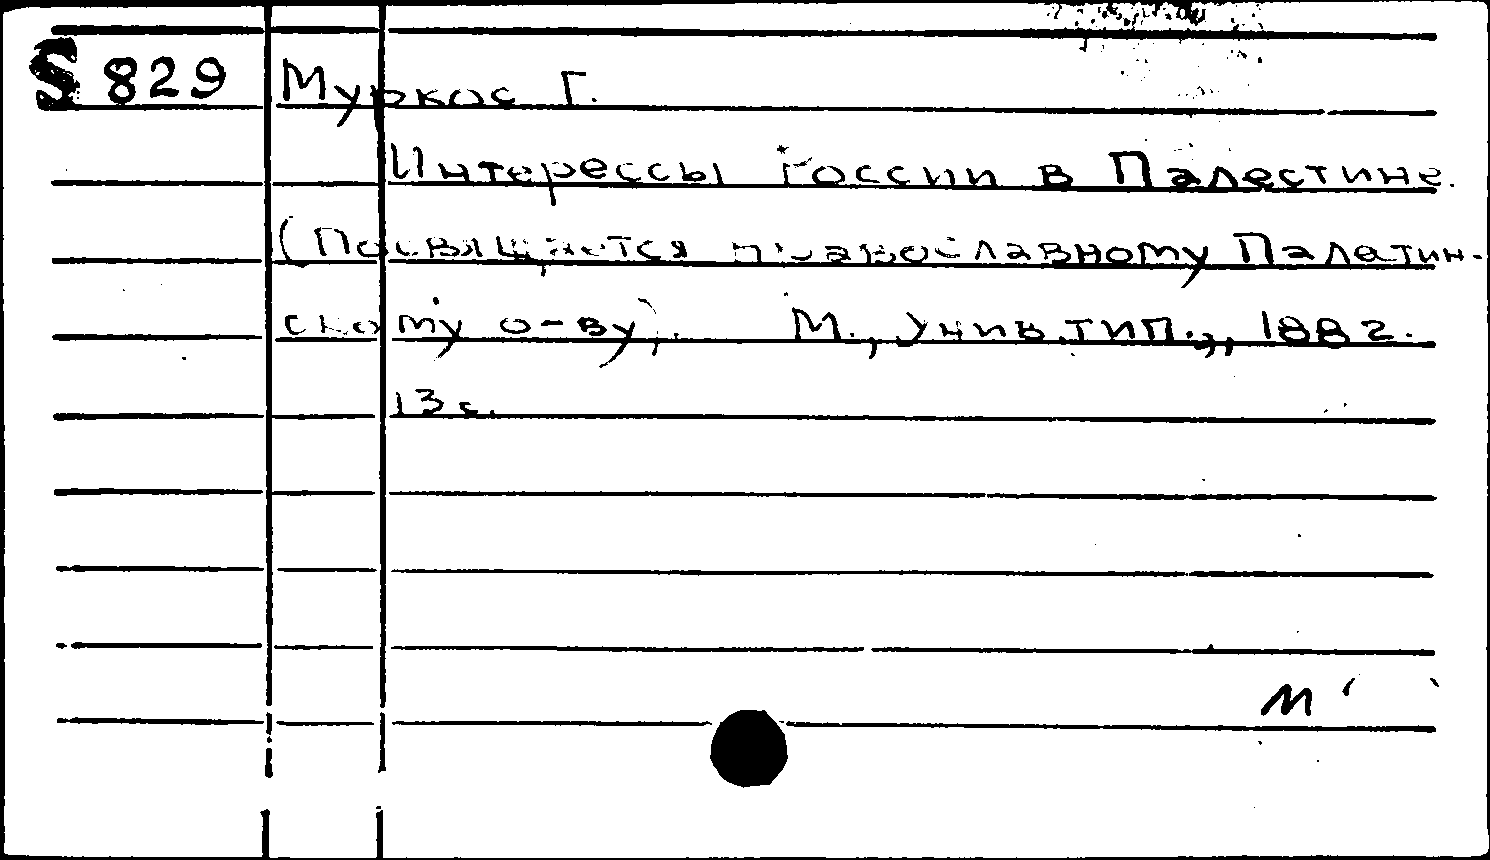 S 829 Муркос Г.
Интерессы России в Палестине.
(Посвящается православному Палетин-
скому о-ву). М., Унив.тип., 1882.
13 с.
М